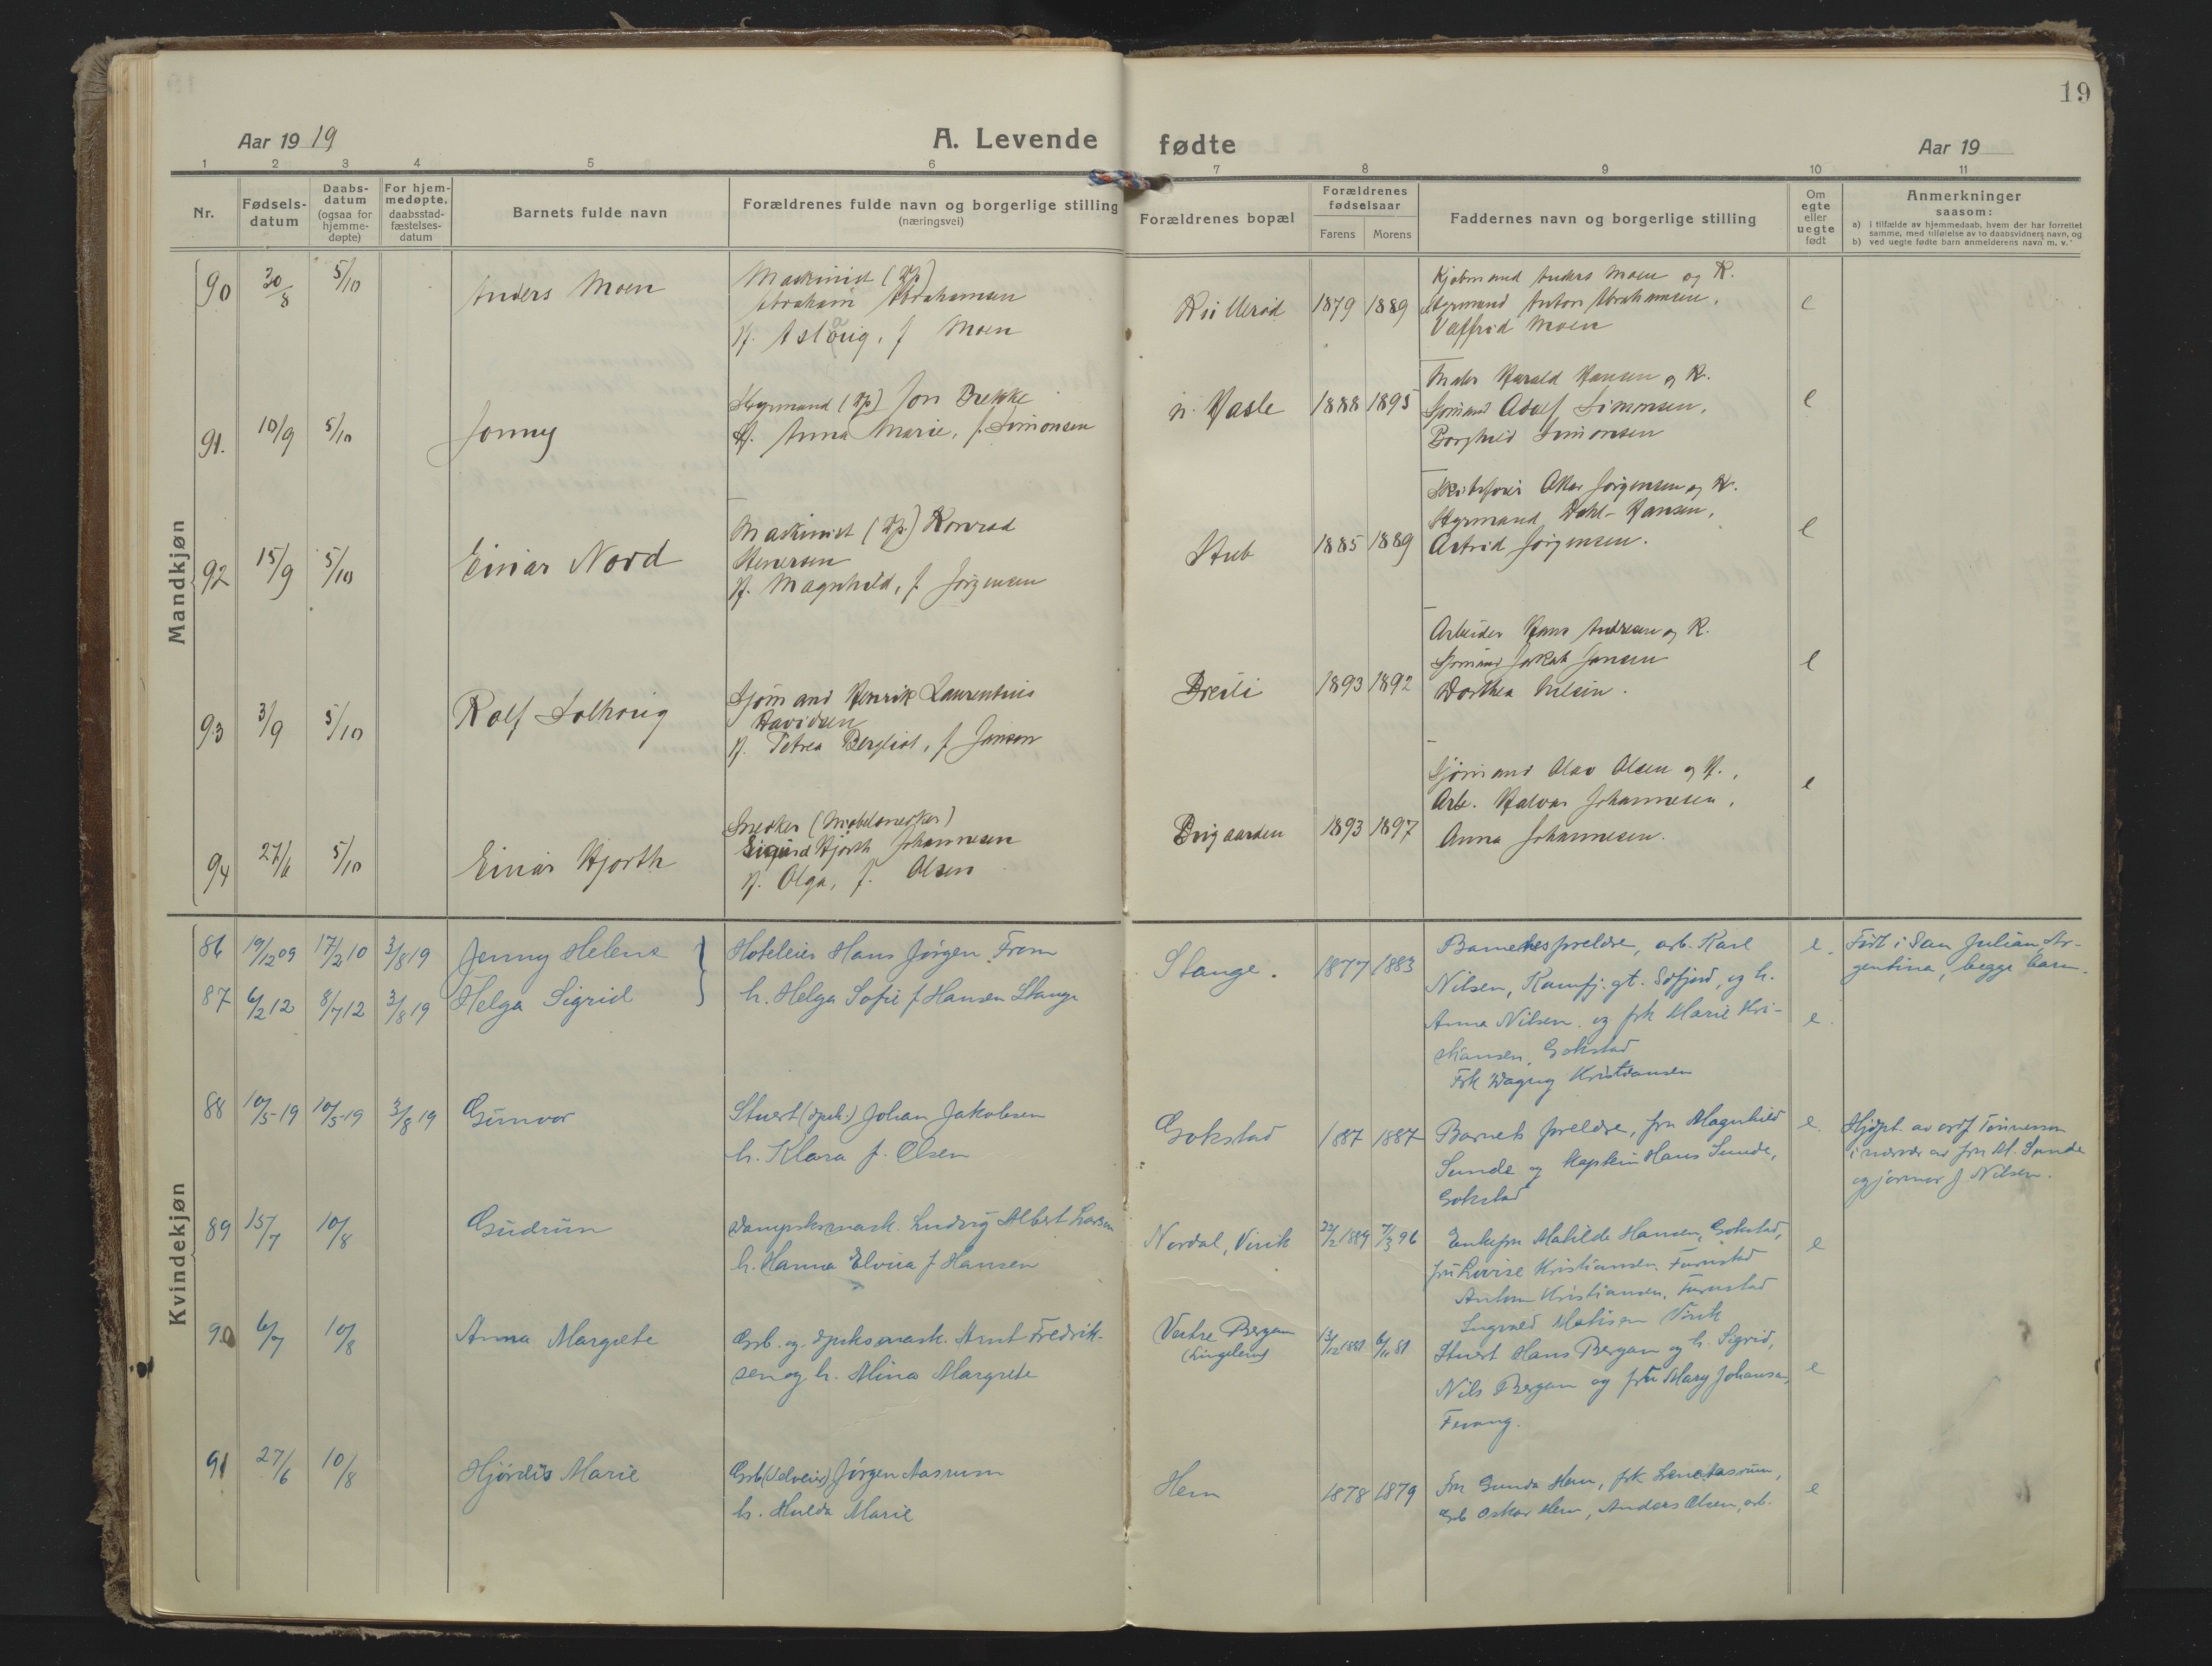 19
Aar 1919
A. Levende fødte
Aar 19
1 2 3 4 5 6 7 8 9 10 11
Nr.
Fødsels-
datum
Daabs-
datum
(ogsaa for
hjemme-
døpte)
For hjem-
medøpte,
daabsstad-
fæstelses-
datum
Barnets fulde navn
Forældrenes fulde navn og borgerlige stilling
(næringsvei)
Forældrenes bopæl
Forældrenes
fødselsaar
Farens Morens
Faddernes navn og borgerlige stilling
Om
egte
eller
uegte
født
Anmerkninger
saasom:
a) i tilfælde av hjemmedaab, hvem der har forrettet
samme, med tilføielse av to daabsvidners navn, og
b) ved uegte fødte barn anmelderens navn m. v.
Mandkjøn
90 30/8 5/10 Anders Moen
Maskinist (Dp)
Abraham Abrahamsen
H. Aslaug, f Moen
1879 1889
Kjøbmand Anders Moen og K.
Styrmand Anton Abrahamsen,
Moen
e
91. 10/9 5/10 Jonny
Styrmand (Dp) Jon Brekke
H. Anna Marie, f. Simonsen
n. Hasle 1888 1895
Harald Hansen og K.
Sjømand Adolf Simonsen,
Borghild Simonsen
e
92 15/9 5/10 Einar Nord
Maskinist (Dp.) Konrad
Stenersen
H. Magnhild, f. Jørgensen
Stub 1885 1889
Jørgensen og K.
Styrmand Dahl-Hansen,
Astrid Jørgensen.
e
93 3/9 5/10 Rolf Solhaug
Sjømand Henrik Laurentius
Davidsen
H. Petrea Bergliot, f Jansen
Breili 1893 1892
Arbeider Hans Andresen og K.
Sjømand Jakob Jansen
Dorthea Nilsen.
e
94 27/6 5/10 Einar Hjorth
Snekker (Møbelsnekker)
Sigurd Hjorth Johannesen
H. Olga, f. Olsen
1893 1897
Sjømand Olav Olsen og H.,
Arb. Halvar Johannesen,
Anna Johannesen.
e
Kvindekjøn
86 19/12 09 17/2 10 3/8 19 Jenny Helene
Hoteleier Hans Jørgen From
87 6/2 12 8/7 12 3/8 19 Helga Sigrid
h. Helga Sofie f Hansen Stange
Stange. 1877 1883
Barnetes forældre, arb. Karl
Nilsen, Kamfj.gt. Sdfjord, og h.
Anna Nilsen. og frk Marie Kri-
stiansen, Gokstad
Frk Dagny Kristiansen
e.
e.
Født i San Julian Ar-
gentina, begge barn.
88 10/5-19 10/5-19 3/8 19 Gunvor
Stuert (dpsk.) Johan Jakobsen
h. Klara f. Olsen
Gokstad 1887 1887
Barnets forældre, fru Magnhild
Sunde og kaptein Hans Sunde,
Gokstad
e.
Hjdpt. av ordf Tønnesson
i nærvær av fru M. Sunde
og jormor J Nilsen.
89 15/7 10/8 Gudrun
Dampsksmask. Ludvig Albert Larsen
h. Hanna Elvira f Hansen
Nordal, Virik 22/2 1889 7/3 96
Enkefru Matilde Hansen, Gokstad,
fru Lovise Kristiansen. Furustad
Anton Kristiansen, Furustad
Ingvald Mathisen Virik
e
90 6/7 10/8 Anna Margrete
Grb. og dpsksmask. Arnt Fredrik-
sen og h. Alina Margrete
Vestre Bergan
13/12 1881 6/11 81
Stuert Hans Bergan og h. Sigrid,
Nils Bergan og fru Mary Johansen,
Fevang.
e
91 27/6 10/8 Hjørdis Marie
Grb (Selveier) Jørgen Aasrum
h. Hulda Marie
Hem 1878 1879
Fru Gunda Hem, frk Lena Aasrum,
Grb Oskar Hem, Anders Olsen, arb.
e